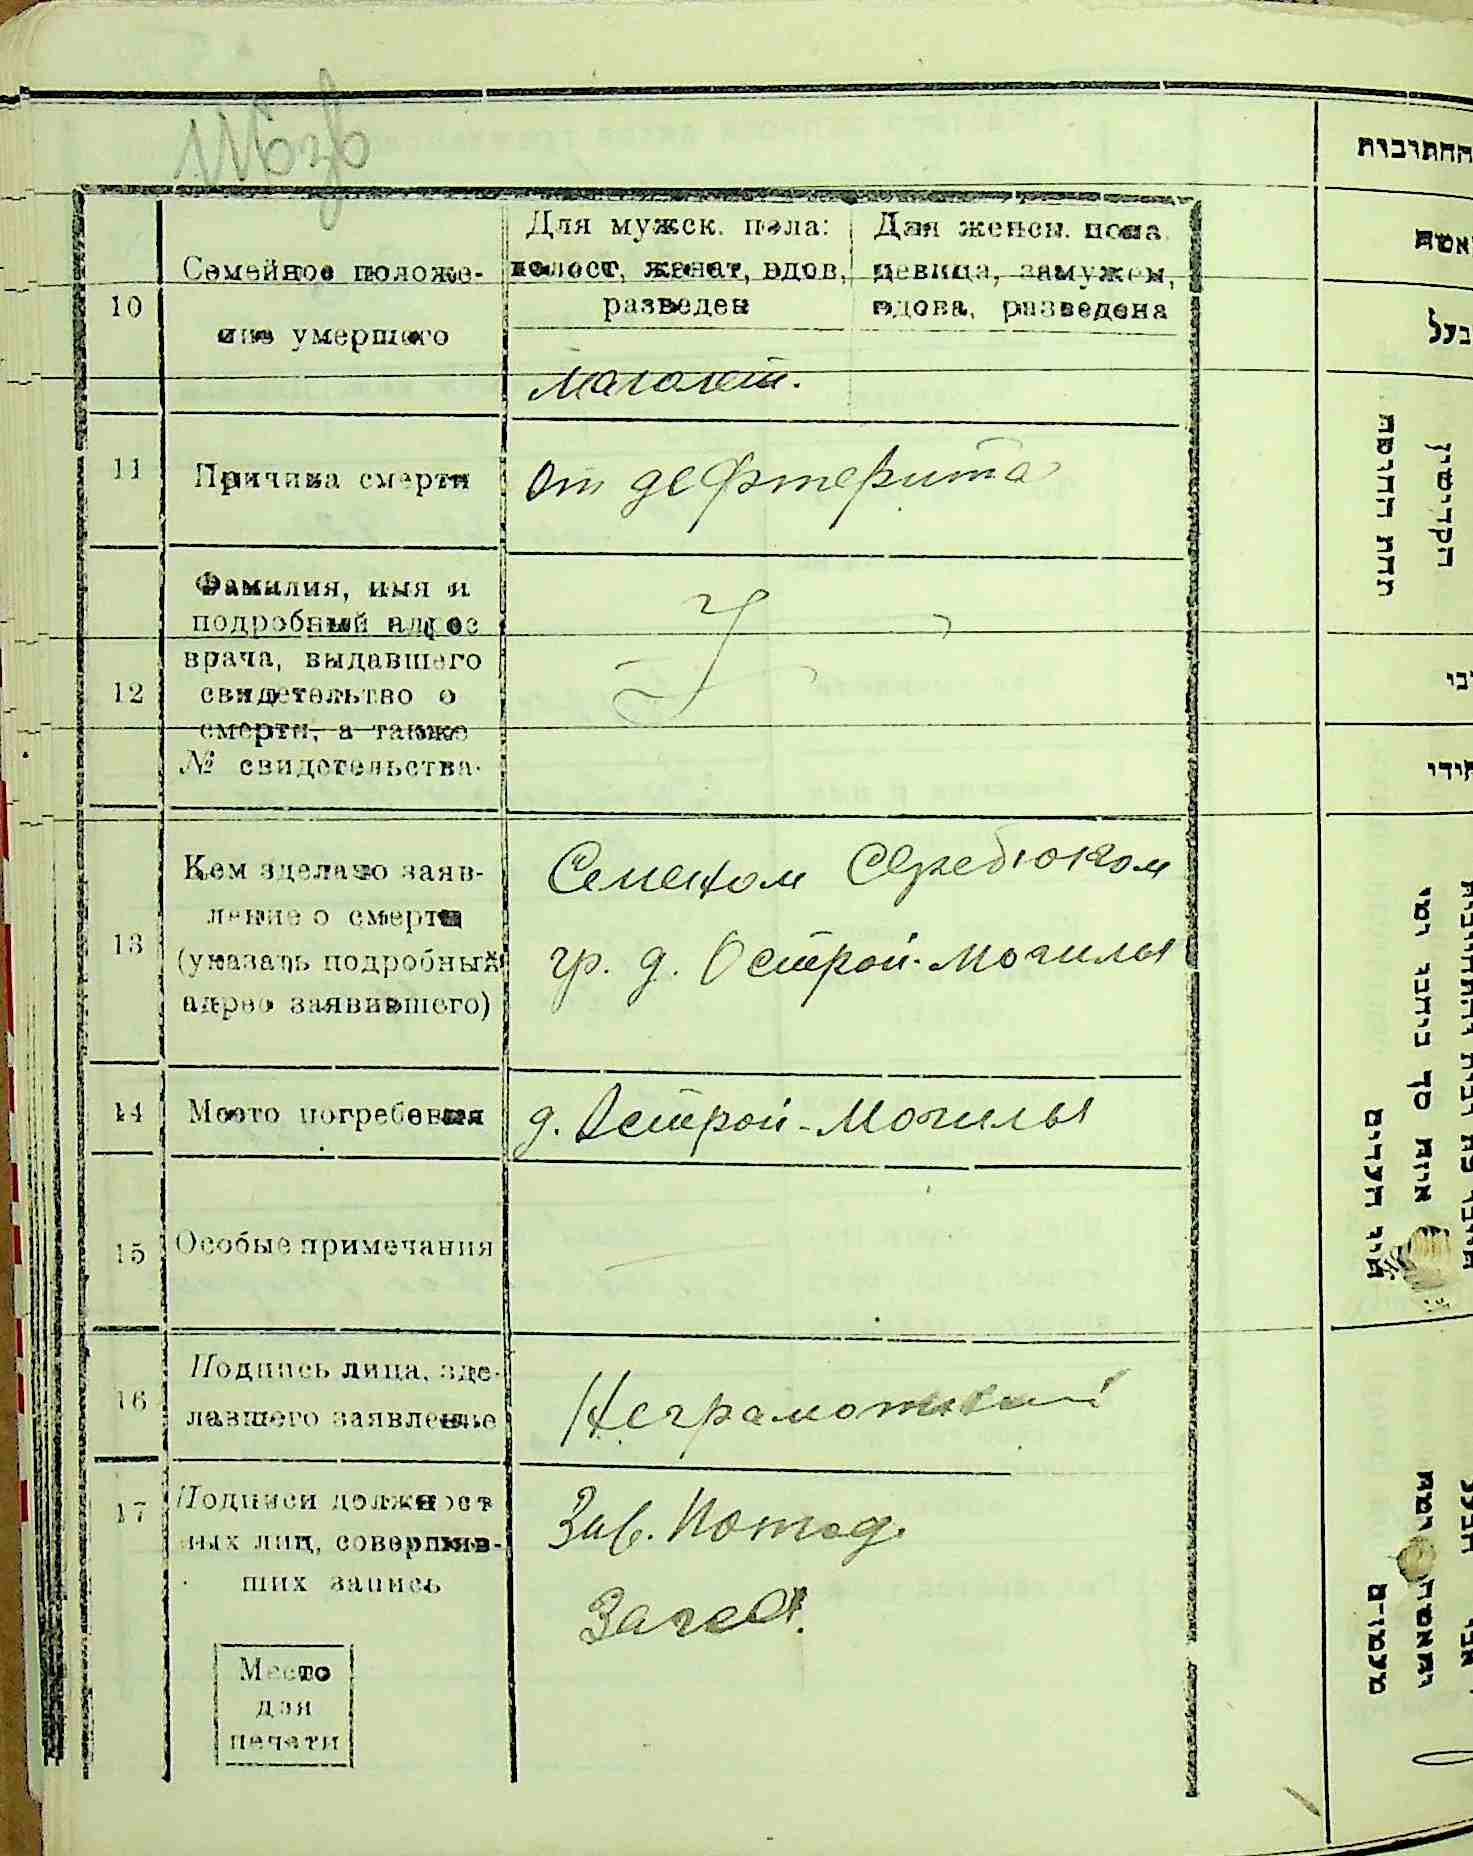 10
Семейное положе-
ние умершого
Для мужск. пола:
холост, женат, вдов,
разведен
Для женск. пола
девица, замужем,
вдова, разведена
малолет.
11
Причина смерти
От дефтерита
12
Фамилия, имя и
подробный адрес
врача, выдавшего
свидетельтво о
смерти, а также
№ свидетельства.
13
Кем зделано заяв-
ление о смерти
(указать подробный
адрес заявившего)
Семеном Сердюком
гр. д. Острой-Могилы
14
Место погребения
д. Острой-Могилы
15
Особые примечания
16
Подпись лица, зде-
лавшего заявление
Неграмотный
17
Подписи должност
ных лиц, совершив-
ших запись
Зав.
Загса.
Место
для
печати
החתובות
בעל
הקדישין
תחת החופה
עיר העדים